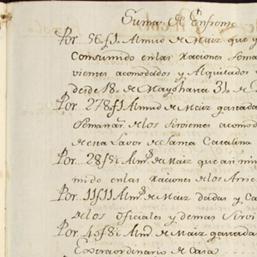 Suma de Enfrente
Por 56 fs 1 Almud de Maiz que
Consumido en las raciones
vientes acomodados y Alquilados
desde 18. de Mayo hasta 31 de
Por 278 fs 1 Almud de Maiz gastadas
Semanas de los Sirvientes acomod
de esta Labor de Santa Catalina
Por 28 fs 1 Alms de Maiz que an
mido en las raciones de los
Por 11 fs 11 Alms de Maiz dadas y
de los oficiales y demas Sirvi
Por 40 fs 8 Alms de Maiz gastadas
Extraordinario de Casa